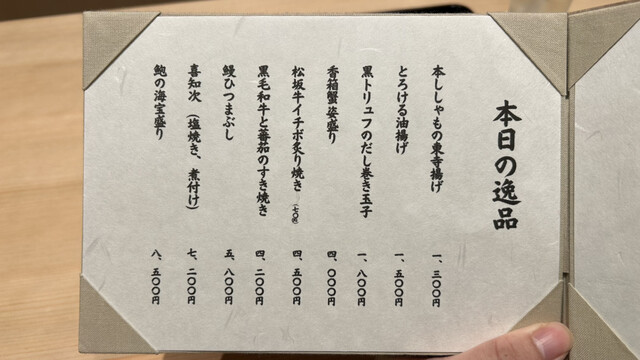 本日の逸品
本ししゃもの東寺揚げ 一、三〇〇円
とろける油揚げ 一、五〇〇円
黒トリュフのだし巻き玉子 一、八〇〇円
香箱蟹姿盛り 四、〇〇〇円
松坂牛イチボ炙り焼き 四、五〇〇円
黒毛和牛と蕃茄のすき焼き 四、二〇〇円
鰻ひつまぶし 五、八〇〇円
喜知次（塩焼き、煮付け） 七、二〇〇円
鮑の海宝盛り 八、五〇〇円